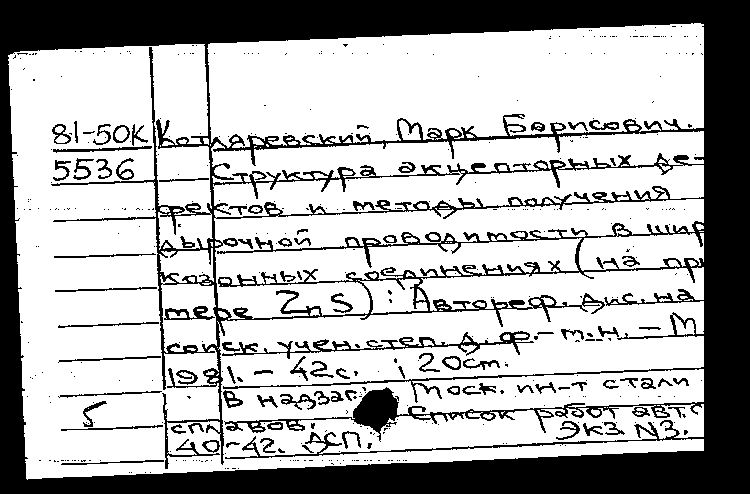 81-50К Котляревский, Марк Борисович.
5536 Структура акцепторных де-
фектов и методы получения
дырочной проводимости в шир
козонных соединениях (на при
мере ZnS): Автореф. дис. на
соиск. учен. степ. д. ф.-т.н. - М
1981. - 42с. ; 20см.
В надзаг.: Моск. ин-т стали
5 сплавов. Список работ авт. с
40-42. ДСП. Экз. N3.